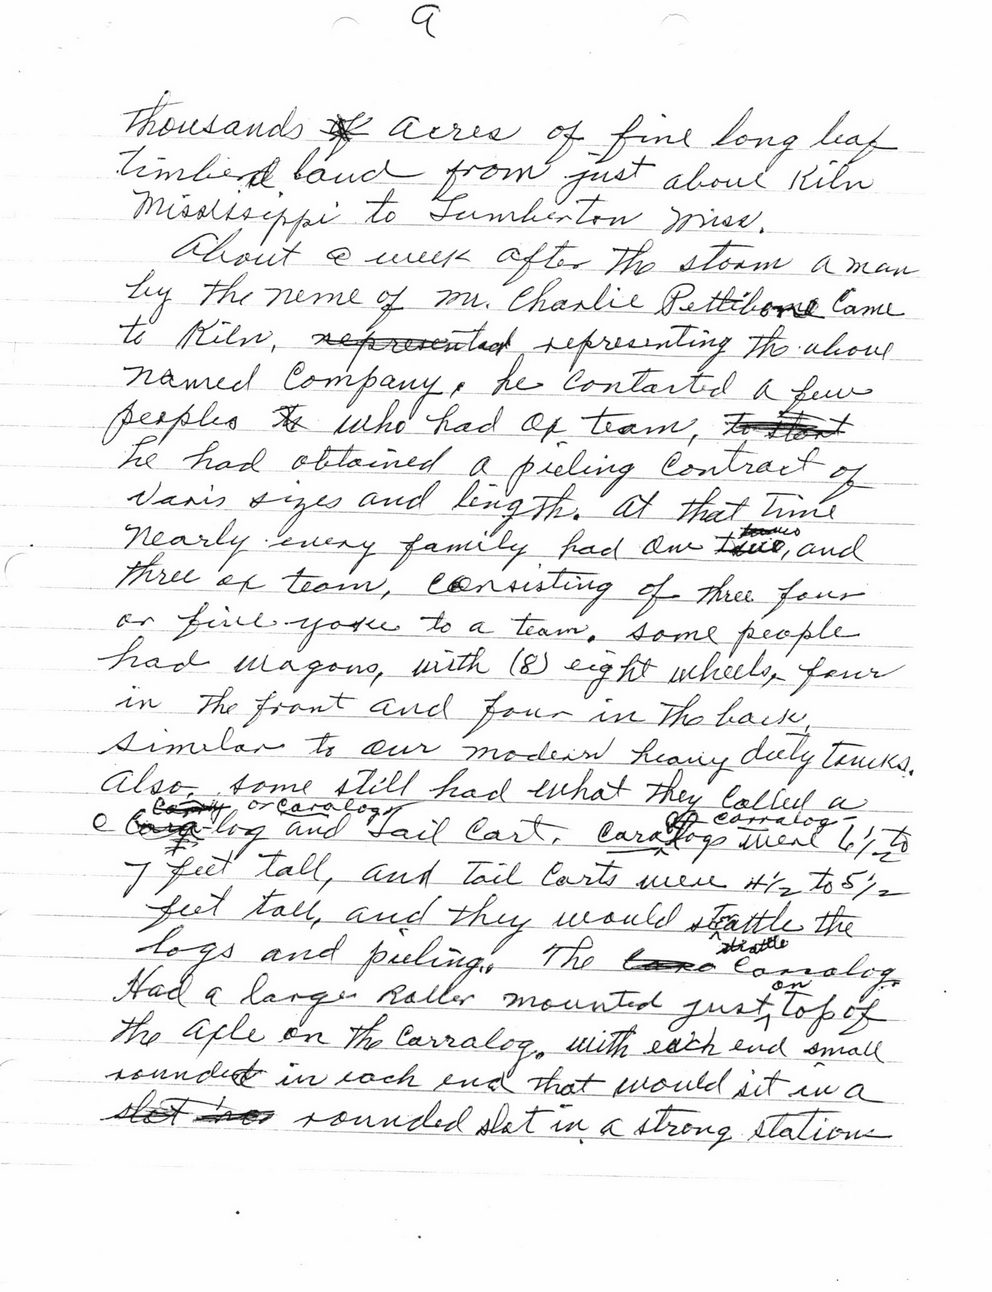 a
thousands of acres of fine long leaf
timberd land from just above Kiln
Mississippi to Lumberton Miss.
About a week after the storm a man
by the neme of Mr. Charlie Pettibone came
to Kiln, represented representing the above
named Company, he contacted a few
peoples to who had ox team, to start
he had obtained a pieling contract of
varis sizes and length. At that time
nearly every family had one two, and
three ox team, consisting of three four
or five yoke to a team. some people
had wagons, with (8) eight wheels, four
in the front and four in the back,
similar to our modern heavy duty trucks.
Also, some still had what they called a
Carry or Caralog
c Cara-log and tail cart. Caralogs carralog were 6 1/2 to
7 feet tall, and tail carts were 4 1/2 to 5 1/2
feet tall, and they would strattle the
logs and pieling. The Caro Carralog
Had a large roller mounted just on top of
the axle on the Carralog. with each end small
rounded in each end that would sit in a
slot rounded slot in a strong stations